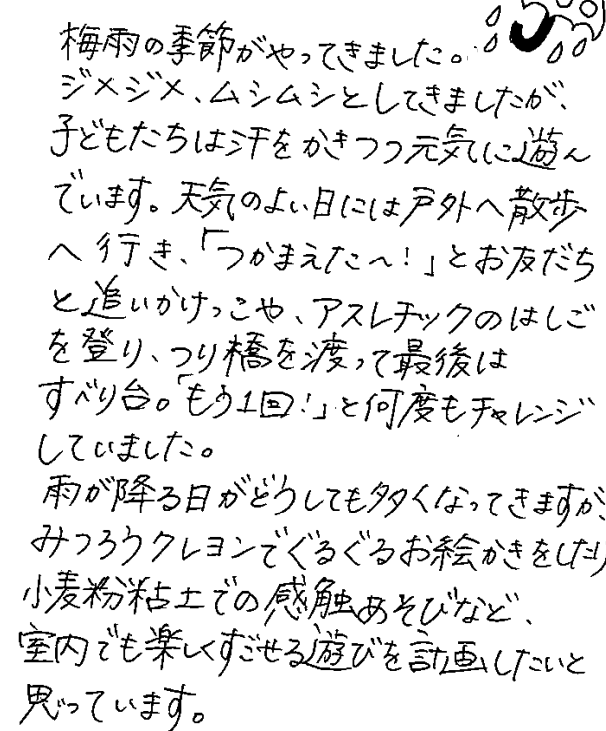 梅雨の季節がやってきました。
ジメジメ、ムシムシとしてきましたが、
子どもたちは汗をかきつつ元気に遊ん
でいます。天気のよい日には戸外へ散歩
へ行き、「つかまえた〜！」とお友だち
と追いかけっこや、アスレチックのはしご
を登り、つり橋を渡って最後は
すべり台。「もう1回！」と何度もチャレンジ
していました。
雨が降る日がどうしても多くなってきますが、
みつろうクレヨンでぐるぐるお絵かきをしたり
小麦粉粘土での感触あそびなど、
室内でも楽しくすごせる遊びを計画したいと
思っています。